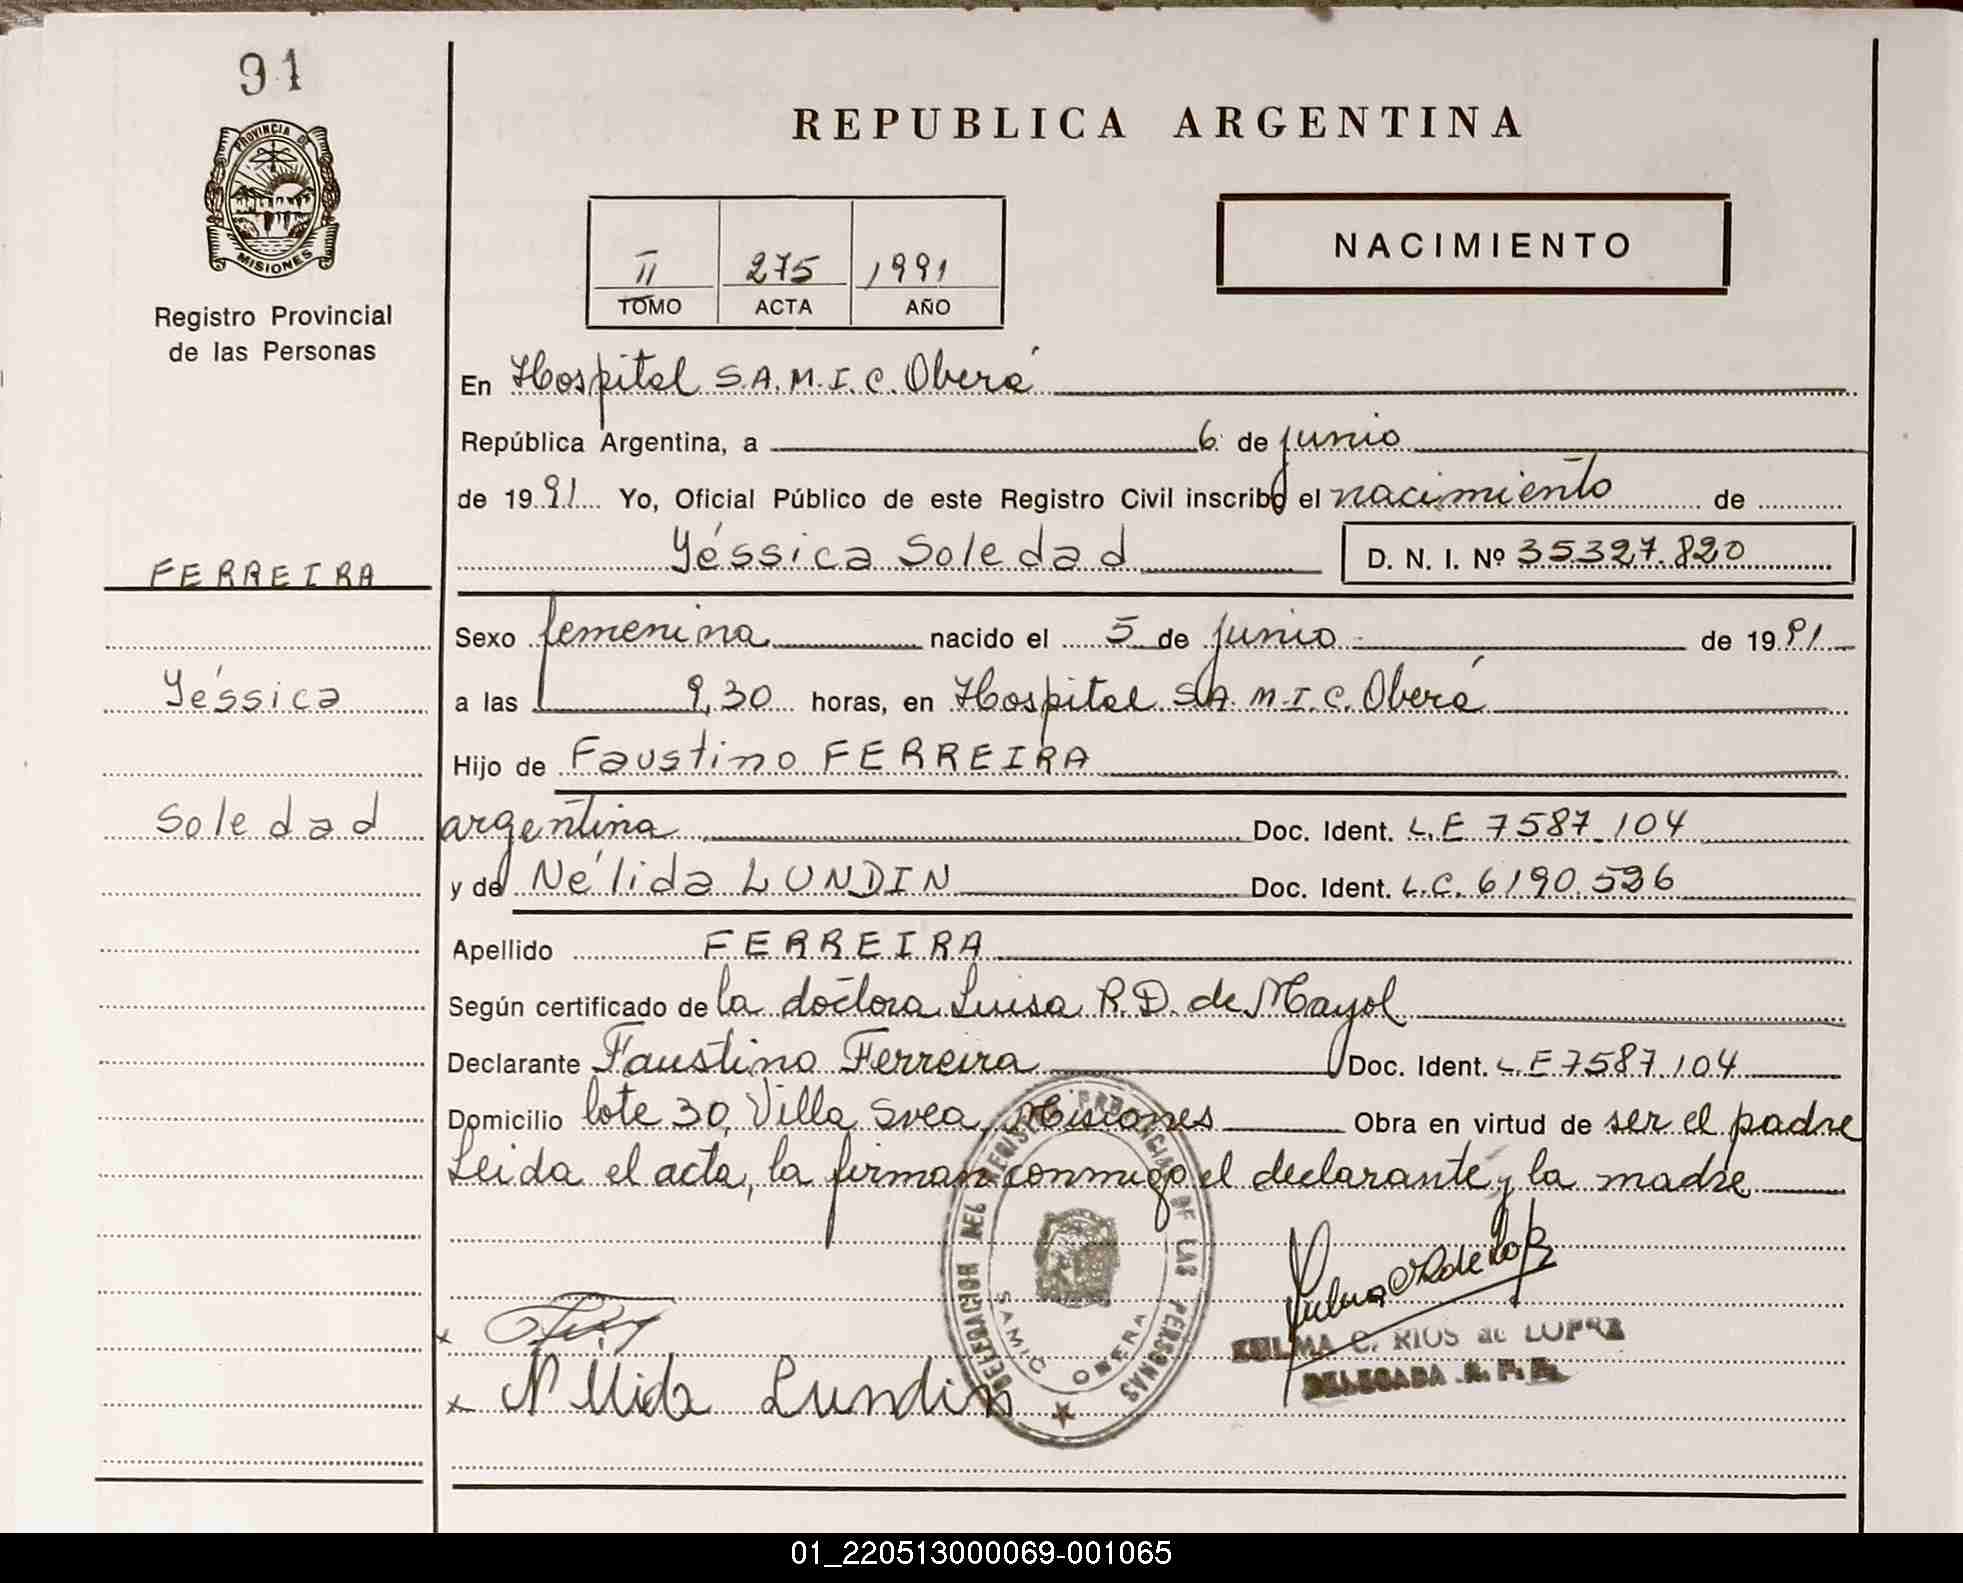 91
PROVINCIA DE
MISIONES
Registro Provincial
de las Personas
FERREIRA
Yéssica
Soledad
REPUBLICA ARGENTINA
II 275 1991
TOMO ACTA AÑO
NACIMIENTO
En Hospital S.A.M.I.C. Oberá
República Argentina, a 6 de junio
de 1991 Yo, Oficial Público de este Registro Civil inscribo el nacimiento de
Yéssica Soledad D. N. I. Nº 35.327.820
Sexo femenina nacido el 5 de junio de 1991
a las 9,30 horas, en Hospital S.A.M.I.C. Oberá
Hijo de Faustino FERREIRA
argentina Doc. Ident. L.E 7587.104
y de Nélida LUNDIN Doc. Ident. L.C. 6190.526
Apellido FERREIRA
Según certificado de la doctora Luisa R.D. de Mayol
Declarante Faustino Ferreira Doc. Ident. L.E 7587.104
Domicilio lote 30, Villa Svea, Misiones Obra en virtud de ser el padre
Leida el acta, la firman conmigo el declarante y la madre
DELEGACION DEL REGISTRO PROVINCIAL DE LAS PERSONAS
SAMIC OBERA
C. RIOS de LOPEZ
DELEGADA R. P. P.
x
x Nélida Lundin
01_220513000069-001065